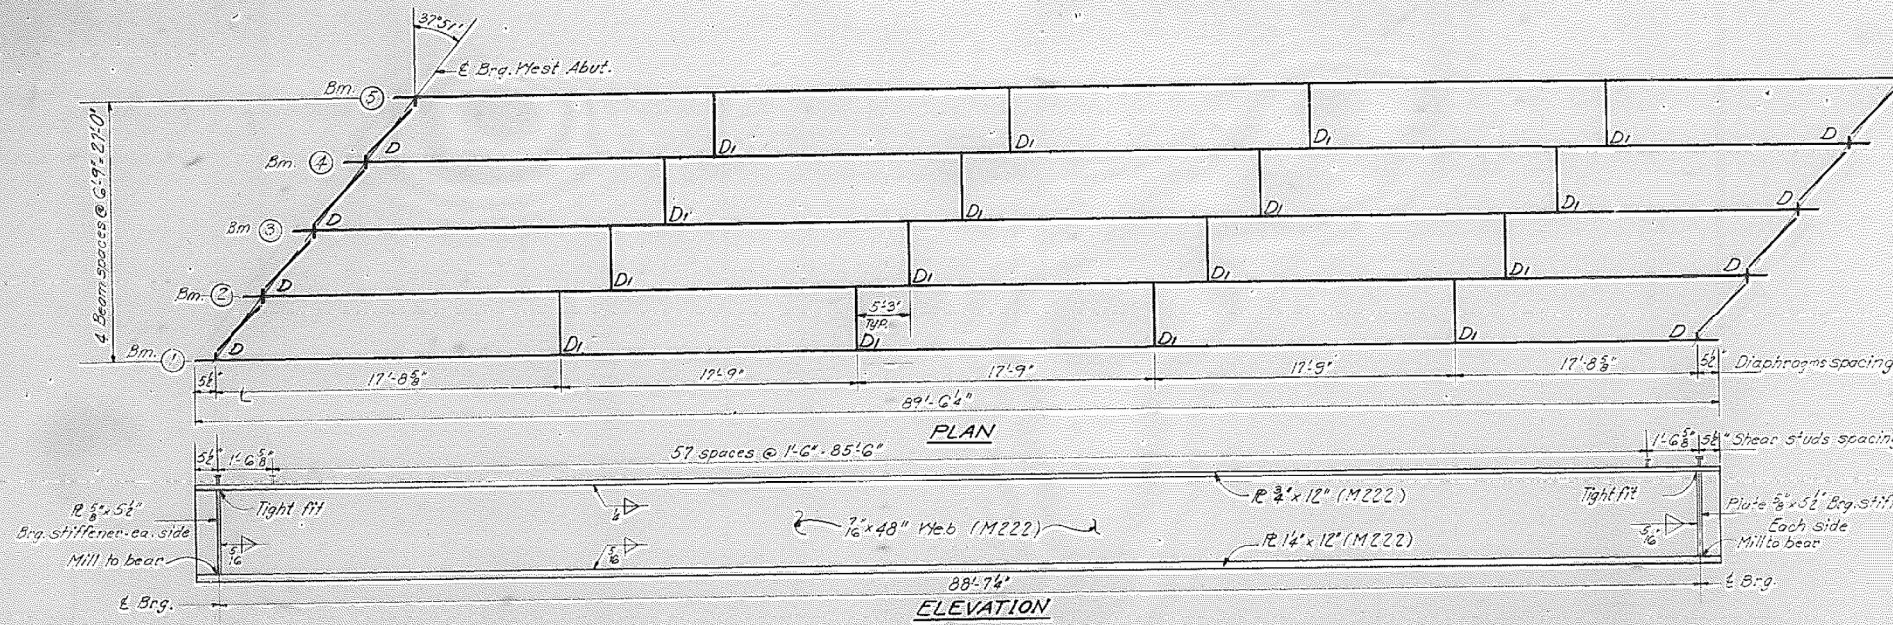 37°51'
℄ Brg. West Abut.
Bm. 5
Bm. 4
Bm 3
Bm. 2
Bm. 1
4 Beam spaces @ 6'-9" = 27'-0"
D D D D
D D D D
D1 D1 D1 D1
D1 D1 D1 D1
D1 D1 D1 D1
D1 D1 D1 D1
5'-3"
TYP.
5½" 17'-8⅝" 17'-9" 17'-9" 17'-9" 17'-8⅝" 5½" Diaphragms spacing
89'-6¼"
PLAN
5½" 1'-6⅝" 57 spaces @ 1'-6" = 85'-6" 1'-6⅝" 5½" Shear studs spacing
℞ ⅝" x 5½"
Brg. stiffener-ea. side
Mill to bear
Tight fit
5/16
5/16
7/16" x 48" Web (M222)
℞ ¾" x 12" (M222)
℞ 1¼" x 12" (M222)
Tight fit
Plate ⅝" x 5½" Brg. stiff
Each side
Mill to bear
5/16
℄ Brg. 88'-7¼" ℄ Brg.
ELEVATION